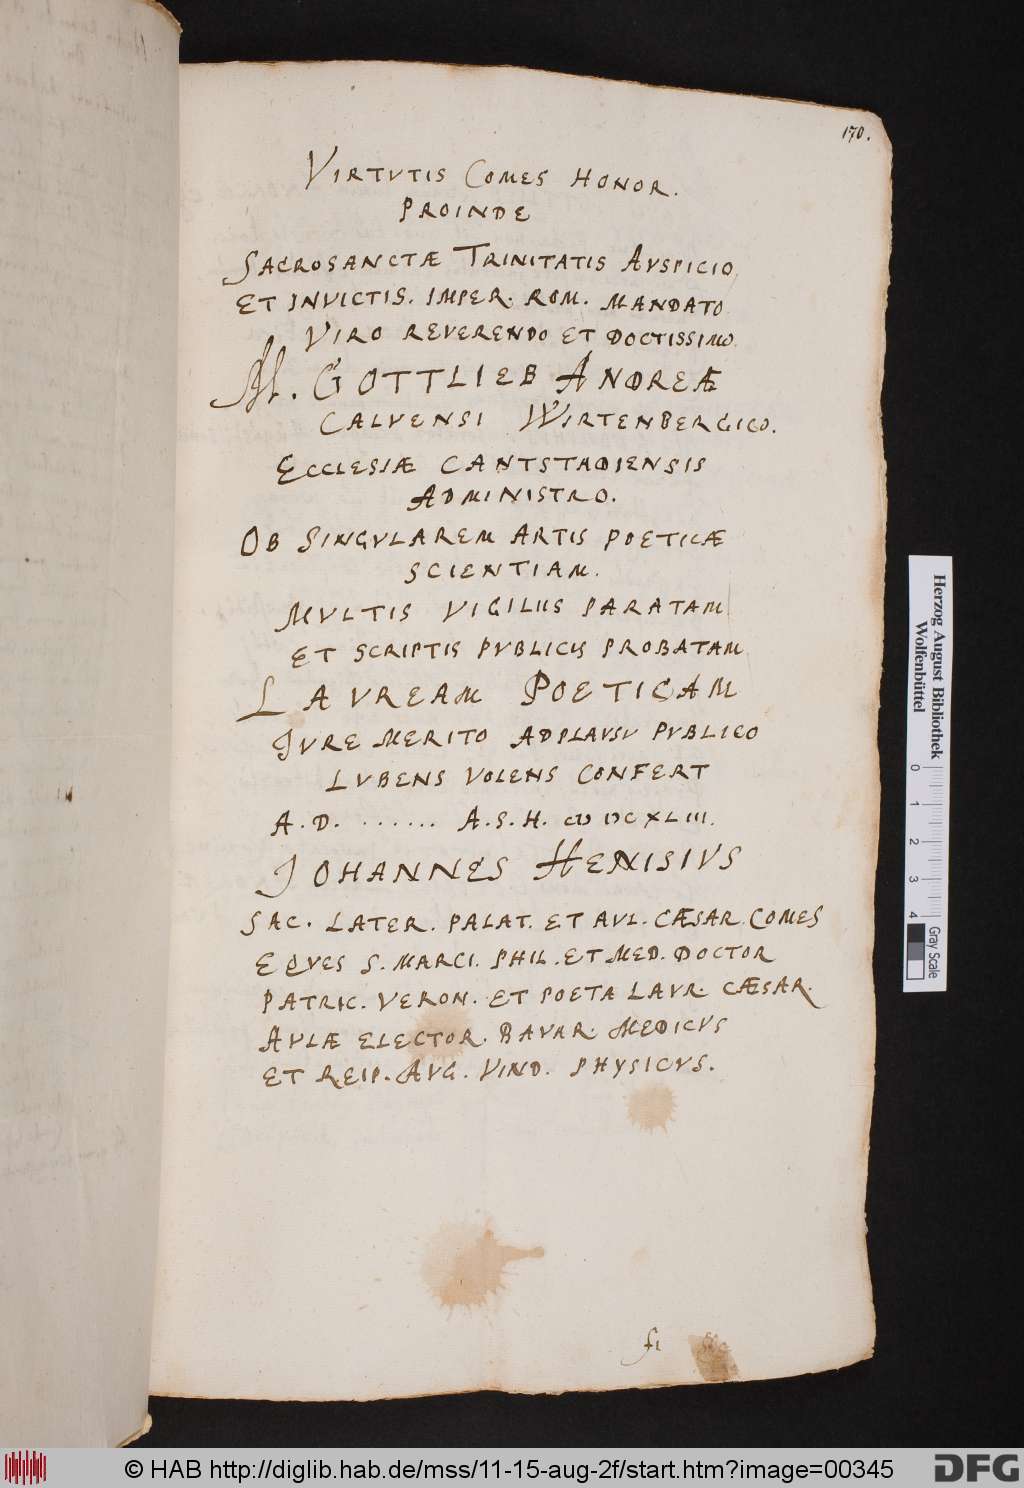 170.
VIRTVTIS COMES HONOR.
PROINDE
SACROSANCTÆ TRINITATIS AVSPICIO
ET INVICTIS. IMPER. ROM. MANDATO
VIRO REVERENDO ET DOCTISSIMO
M. GOTTLIEB ANDREÆ
CALVENSI WIRTENBERGICO.
ECCLESIÆ CANTSTADIENSIS
ADMINISTRO.
OB SINGVLAREM ARTIS POETICÆ
SCIENTIAM.
MVLTIS VIGILIIS PARATAM
ET SCRIPTIS PVBLICIS PROBATAM
LAVREAM POETICAM
JVRE MERITO ADPLAVSV PVBLICO
LVBENS VOLENS CONFERT
A. D. . . . . . . A. S. H. CIↃ IↃC XLIII.
JOHANNES HENISIVS
SAC. LATER. PALAT. ET AVL. CÆSAR. COMES
EQVES S. MARCI. PHIL. ET MED. DOCTOR
PATRIC. VERON. ET POETA LAVR. CÆSAR.
AVLÆ ELECTOR. BAVAR. MEDICVS
ET REIP. AVG. VIND. PHYSICVS.
Herzog August Bibliothek
Wolfenbüttel
0 1 2 3 4
Gray Scale
© HAB http://diglib.hab.de/mss/11-15-aug-2f/start.htm?image=00345
DFG